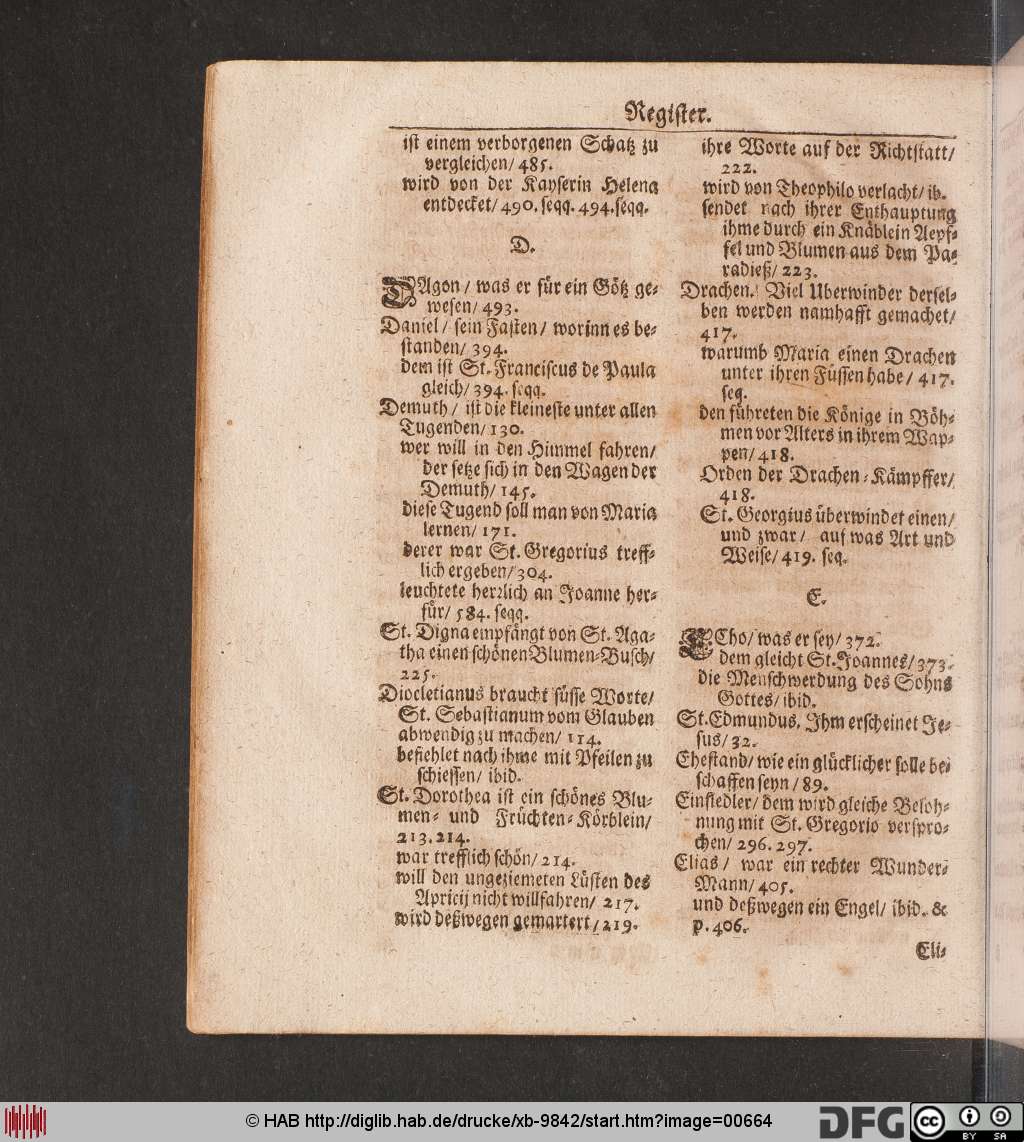 Register.
ist einem verborgenen Schatz zu
vergleichen/ 485.
wird von der Kayserin Helena
entdecket/ 490. seqq. 494. seqq.
D.
DAgon / was er für ein Götz ge-
wesen/ 493.
Daniel / sein Fasten / worinn es be-
standen/ 394.
dem ist St. Franciscus de Paula
gleich/ 394. seqq.
Demuth / ist die kleineste unter allen
Tugenden/ 130.
wer will in den Himmel fahren/
der setze sich in den Wagen der
Demuth/ 145.
diese Tugend soll man von Maria
lernen/ 171.
derer war St. Gregorius treff-
lich ergeben/ 304.
leuchtete herrlich an Joanne her-
für/ 584. seqq.
St. Digna empfängt von St. Aga-
tha einen schönen Blumen-Busch/
225.
Diocletianus braucht süsse Worte/
St. Sebastianum vom Glauben
abwendig zu machen/ 114.
befiehlet nach ihme mit Pfeilen zu
schiessen/ ibid.
St. Dorothea ist ein schönes Blu-
men- und Früchten-Körblein/
213. 214.
war trefflich schön/ 214.
will den ungeziemeten Lüsten des
Apricij nicht willfahren/ 217.
wird deßwegen gemartert / 219.
ihre Worte auf der Richtstatt/
222.
wird von Theophilo verlacht/ ib.
sendet nach ihrer Enthauptung
ihme durch ein Knäblein Aepf-
fel und Blumen aus dem Pa-
radieß/ 223.
Drachen. Viel Uberwinder dersel-
ben werden namhafft gemachet/
417.
warumb Maria einen Drachen
unter ihren Füssen habe / 417.
seq.
den führeten die Könige in Böh-
men vor Alters in ihrem Wap-
pen/ 418.
Orden der Drachen-Kämpffer/
418.
St. Georgius überwindet einen/
und zwar / auf was Art und
Weise/ 419. seq.
E.
ECho/ was er sey/ 372.
dem gleicht St. Joannes/ 373.
die Menschwerdung des Sohns
Gottes/ ibid.
St. Edmundus. Ihm erscheinet Je-
sus/ 32.
Ehestand/ wie ein glücklicher solle be-
schaffen seyn / 89.
Einsiedler/ dem wird gleiche Beloh-
nung mit St. Gregorio verspro-
chen/ 296. 297.
Elias / war ein rechter Wunder-
Mann/ 405.
und deßwegen ein Engel/ ibid. &
p. 406.
Eli-
© HAB http://diglib.hab.de/drucke/xb-9842/start.htm?image=00664
DFG
cc
BY SA